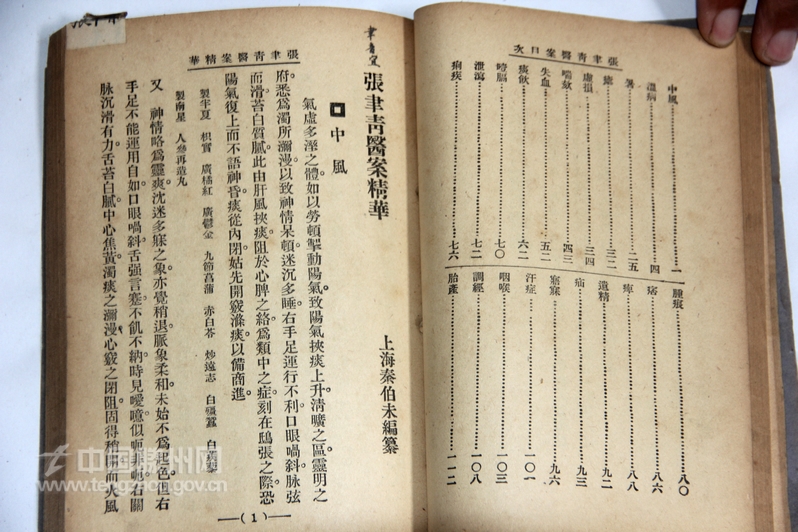 張聿青醫案目次
中風⋯⋯一
溫病⋯⋯四
暑⋯⋯二五
瘧⋯⋯三二
虛損⋯⋯三四
喘欬⋯⋯四三
失血⋯⋯五二
痰飲⋯⋯六二
嘈膈⋯⋯七〇
泄瀉⋯⋯七二
痢疾⋯⋯七六
腫脹⋯⋯八〇
痞⋯⋯八六
痺⋯⋯八八
遺精⋯⋯九一
疝⋯⋯九三
寤寐⋯⋯九六
汗症⋯⋯一〇一
咽喉⋯⋯一〇三
調經⋯⋯一〇八
胎產⋯⋯一一二
張聿青醫案精華
張聿青醫案精華
上海秦伯未編纂
中風
氣虛多溼之體。如以勞頓掣動陽氣。致陽氣挾痰上升。清曠之區。靈明之
府。悉爲濁所瀰漫。以致神情呆頓。迷沉多睡。右手足運行不利。口眼喎斜。脉弦
而滑。苔白質膩。此由肝風挾痰。阻於心脾之絡。爲類中之症。刻在鴟張之際。恐
陽氣復上。而不語神昏。痰從內閉。姑先開竅滌痰。以備商進。
製半夏 枳實 廣橘紅 廣鬱金 九節菖蒲 赤白苓 炒遠志 白殭蠶 白蒺藜
製南星 人參再造丸
又 神情略爲靈爽。沈迷多寐之象。亦覺稍退。脈象柔和。未始不爲起色。但右
手足不能運用自如。口眼喎斜。舌強言蹇。不飢不納。時見噯噫。似呃非呃。右關
脉沉滑有力。舌苔白膩。中心焦黃。濁痰之瀰漫。心竅之閉阻。固得稍開。而火風
(1)
中国滕州网
www.tengzhou.gov.cn